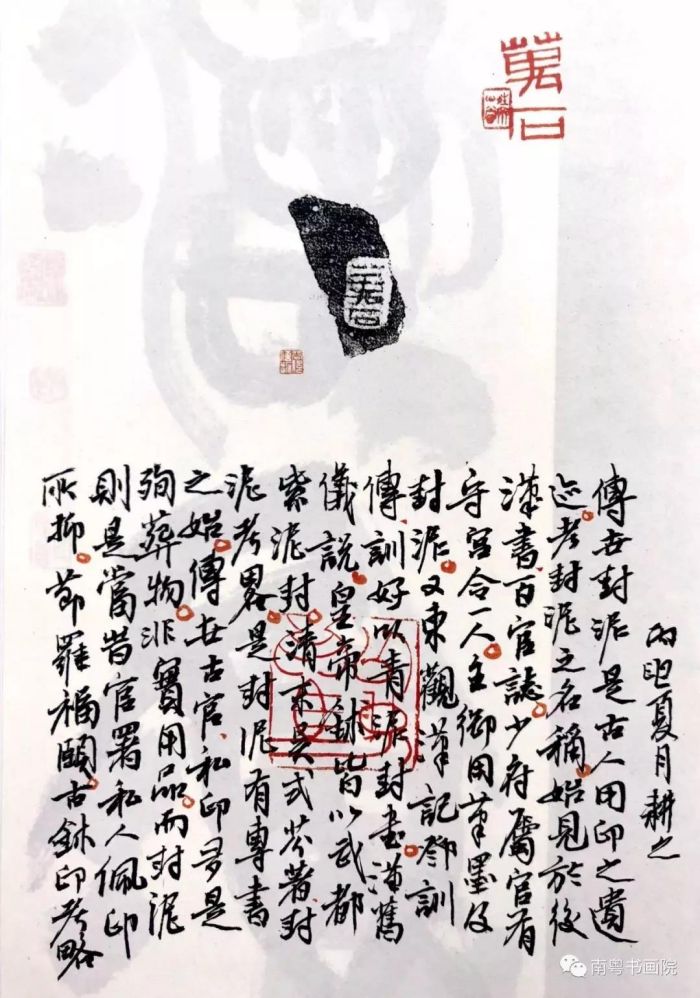 萬石
萬石
夏月耕之
傳世封泥是古人用印之遺
迹。考封泥之名稱。始見於後
漢書百官誌。少府屬官有
守宮令一人。主御用筆墨及
封泥。又東觀漢記。鄧訓
傳。訓好以青泥封書。漢舊
儀說。皇帝鉥皆以武都
紫泥封。清末吳式芬著封
泥考畧。是封泥有專書
之始。傳世古官、私印多是
殉葬物。非實用品。而封泥
則是當昔官署私人佩印
所抑。節羅福頤古鉥印考略
南粤书画院